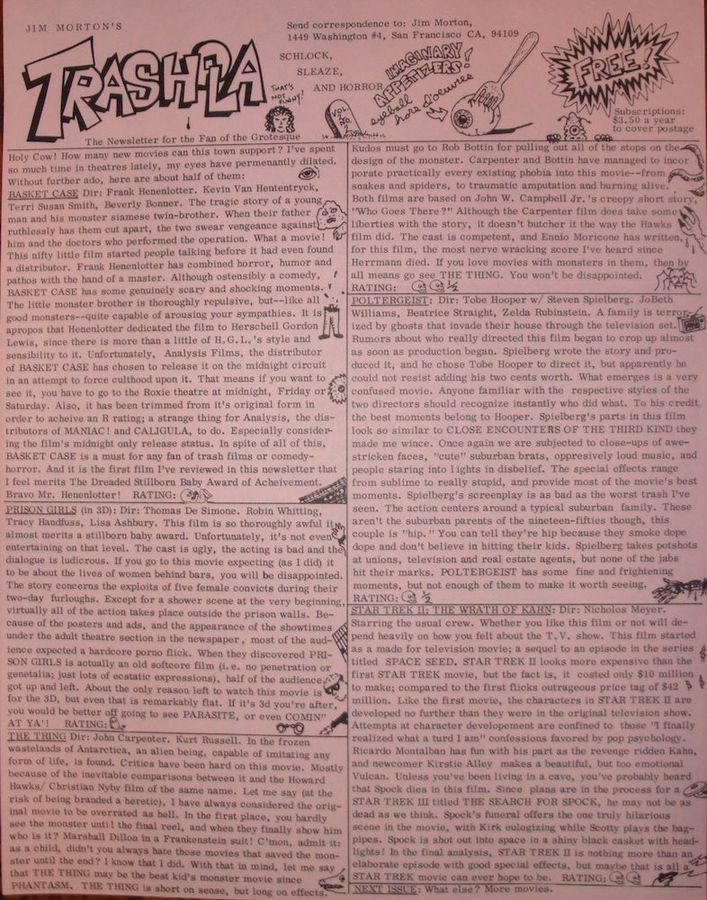 JIM MORTON'S
TRASHOLA
Send correspondence to: Jim Morton,
1449 Washington #4, San Francisco CA, 94109
SCHLOCK,
SLEAZE,
AND HORROR
THAT'S
NOT
FUNNY!
VOL.
NO.
IMAGINARY
APPETIZERS!
eyeball
hors d'oeuvres
FREE!
Subscriptions:
$3.50 a year
to cover postage
The Newsletter for the Fan of the Grotesque
Holy Cow! How many new movies can this town support? I've spent
so much time in theatres lately, my eyes have permenantly dilated.
Without further ado, here are about half of them:
BASKET CASE Dir: Frank Henenlotter. Kevin Van Hententryck,
Terri Susan Smith, Beverly Bonner. The tragic story of a young
man and his monster siamese twin-brother. When their father
ruthlessly has them cut apart, the two swear vengeance against
him and the doctors who performed the operation. What a movie!
This nifty little film started people talking before it had even found
a distributor. Frank Henenlotter has combined horror, humor and
pathos with the hand of a master. Although ostensibly a comedy,
BASKET CASE has some genuinely scary and shocking moments.
The little monster brother is thoroughly repulsive, but--like all
good monsters--quite capable of arousing your sympathies. It is
apropos that Henenlotter dedicated the film to Herschell Gordon
Lewis, since there is more than a little of H.G.L.'s style and
sensibility to it. Unfortunately, Analysis Films, the distributor
of BASKET CASE has chosen to release it on the midnight circuit
in an attempt to force culthood upon it. That means if you want to
see it, you have to go to the Roxie theatre at midnight, Friday or
Saturday. Also, it has been trimmed from it's original form in
order to acheive an R rating; a strange thing for Analysis, the dis-
tributors of MANIAC! and CALIGULA, to do. Especially consider-
ing the film's midnight only release status. In spite of all of this,
BASKET CASE is a must for any fan of trash films or comedy-
horror. And it is the first film I've reviewed in this newsletter that
I feel merits The Dreaded Stillborn Baby Award of Acheivement.
Bravo Mr. Henenlotter! RATING:
PRISON GIRLS (in 3D): Dir: Thomas De Simone. Robin Whitting,
Tracy Handfuss, Lisa Ashbury. This film is so thoroughly awful it
almost merits a stillborn baby award. Unfortunately, it's not even
entertaining on that level. The cast is ugly, the acting is bad and the
dialogue is ludicrous. If you go to this movie expecting (as I did) it
to be about the lives of women behind bars, you will be disappointed.
The story concerns the exploits of five female convicts during their
two-day furloughs. Except for a shower scene at the very beginning,
virtually all of the action takes place outside the prison walls. Be-
cause of the posters and ads, and the appearance of the showtimes
under the adult theatre section in the newspaper, most of the aud-
ience expected a hardcore porno flick. When they discovered PRI-
SON GIRLS is actually an old softcore film (i.e. no penetration or
genetalia; just lots of ecstatic expressions), half of the audience
got up and left. About the only reason left to watch this movie is
for the 3D, but even that is remarkably flat. If it's 3d you're after,
you would be better off going to see PARASITE, or even COMIN'
AT YA'! RATING:
THE THING Dir: John Carpenter. Kurt Russell. In the frozen
wastelands of Antarctica, an alien being, capable of imitating any
form of life, is found. Critics have been hard on this movie. Mostly
because of the inevitable comparisons between it and the Howard
Hawks/ Christian Nyby film of the same name. Let me say (at the
risk of being branded a heretic), I have always considered the orig-
inal movie to be overrated as hell. In the first place, you hardly
see the monster until the final reel, and when they finally show him
who is it? Marshall Dillon in a Frankenstein suit! C'mon, admit it;
as a child, didn't you always hate those movies that saved the mon-
ster until the end? I know that I did. With that in mind, let me say
that THE THING may be the best kid's monster movie since
PHANTASM. THE THING is short on sense, but long on effects.
Kudos must go to Rob Bottin for pulling out all of the stops on the
design of the monster. Carpenter and Bottin have managed to incor
porate practically every existing phobia into this movie--from
snakes and spiders, to traumatic amputation and burning alive.
Both films are based on John W. Campbell Jr.'s creepy short story,
"Who Goes There?" Although the Carpenter film does take some
liberties with the story, it doesn't butcher it the way the Hawks
film did. The cast is competent, and Ennio Moricone has written,
for this film, the most nerve wracking score I've heard since
Herrmann died. If you love movies with monsters in them, then by
all means go see THE THING. You won't be disappointed.
RATING: 1/2
POLTERGEIST: Dir: Tobe Hooper w/ Steven Spielberg. JoBeth
Williams, Beatrice Straight, Zelda Rubinstein. A family is terror-
ized by ghosts that invade their house through the television set.
Rumors about who really directed this film began to crop up almost
as soon as production began. Spielberg wrote the story and pro-
duced it, and he chose Tobe Hooper to direct it, but apparently he
could not resist adding his two cents worth. What emerges is a very
confused movie. Anyone familiar with the respective styles of the
two directors should recognize instantly who did what. To his credit
the best moments belong to Hooper. Spielberg's parts in this film
look so similar to CLOSE ENCOUNTERS OF THE THIRD KIND they
made me wince. Once again we are subjected to close-ups of awe-
stricken faces, "cute" suburban brats, oppresively loud music, and
people staring into lights in disbelief. The special effects range
from sublime to really stupid, and provide most of the movie's best
moments. Spielberg's screenplay is as bad as the worst trash I've
seen. The action centers around a typical suburban family. These
aren't the suburban parents of the nineteen-fifties though, this
couple is "hip." You can tell they're hip because they smoke dope
dope and don't believe in hitting their kids. Spielberg takes potshots
at unions, television and real estate agents, but none of the jabs
hit their marks. POLTERGEIST has some fine and frightening
moments, but not enough of them to make it worth seeing.
RATING: 1/2
STAR TREK II; THE WRATH OF KAHN: Dir: Nicholos Meyer.
Starring the usual crew. Whether you like this film or not will de-
pend heavily on how you felt about the T.V. show. This film started
as a made for television movie; a sequel to an episode in the series
titled SPACE SEED. STAR TREK II looks more expensive than the
first STAR TREK movie, but the fact is, it costed only $10 million
to make; compared to the first flicks outrageous price tag of $42
million. Like the first movie, the characters in STAR TREK II are
developed no further than they were in the original television show.
Attempts at character development are confined to those "I finally
realized what a turd I am" confessions favored by pop psychology.
Ricardo Montalban has fun with his part as the revenge ridden Kahn,
and newcomer Kirstie Alley makes a beautiful, but too emotional
Vulcan. Unless you've been living in a cave, you've probably heard
that Spock dies in this film. Since plans are in the process for a
STAR TREK III titled THE SEARCH FOR SPOCK, he may not be as
dead as we think. Spock's funeral offers the one truly hilarious
scene in the movie, with Kirk eulogizing while Scotty plays the bag-
pipes. Spock is shot out into space in a shiny black casket with head-
lights! In the final analysis, STAR TREK II is nothing more than an
elaborate episode with good special effects, but maybe that is all a
STAR TREK movie can ever hope to be. RATING:
NEXT ISSUE: What else? More movies.